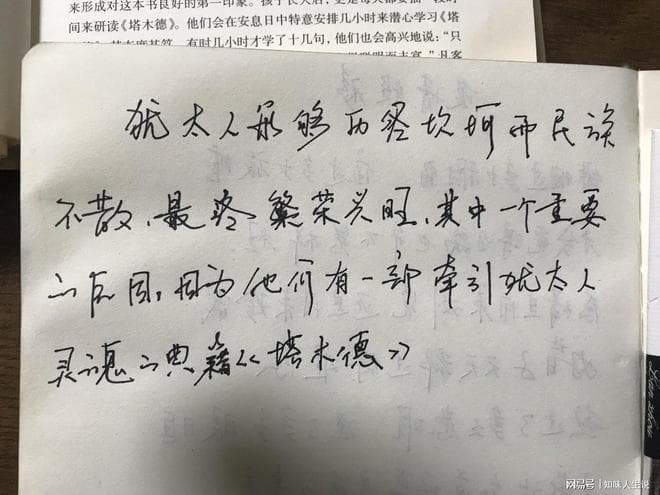 来形成对这本书良好的第一印象。孩子长大后,更是每天都要抽一段时
间来研读《塔木德》。他们会在安息日中特意安排几小时来潜心学习《塔
有时几小时才学了十几句,他们也会高兴地说:“只
犹太人能够历尽坎坷而民族
不散、最终繁荣兴旺,其中一个重要
的原因,因为他们有一部牵引犹太人
灵魂的典籍《塔木德》
网易号 | 知味人生说